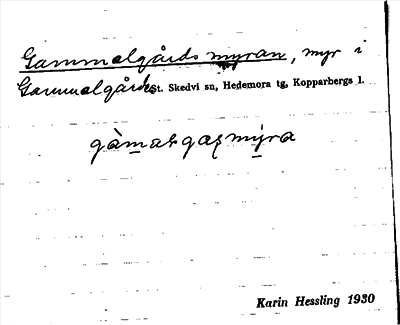 Gammelgårdsmyran, myr i
Gammelgården St. Skedvi sn, Hedemora tg, Kopparbergs l.
Karin Hessling 1930